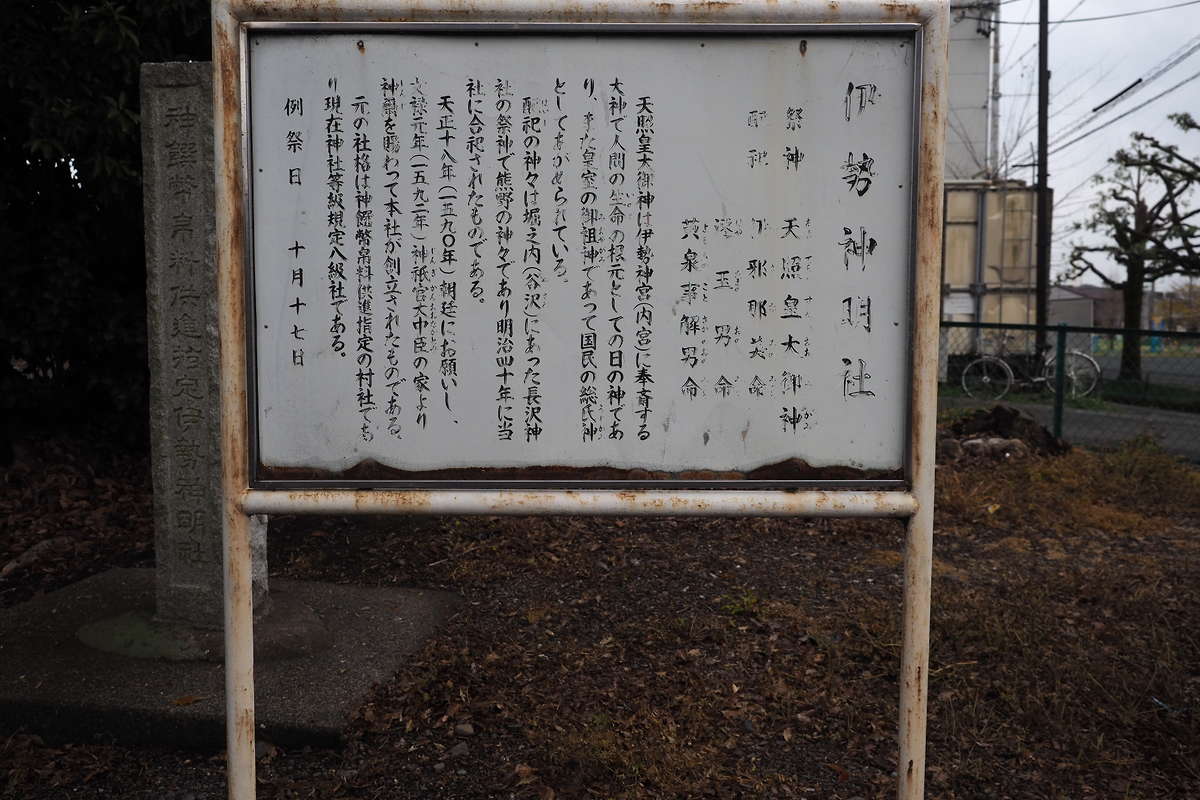 伊勢神明社
祭神 天照皇大御神
配祀 伊邪那美命
速玉男命
黄泉事解男命
天照皇大御神は伊勢神宮(内宮)に奉斎する
大神で人間の生命の根元としての日の神であ
り、また皇室の御祖神であって国民の総氏神
としてあがめられている。
配祀の神々は堀之内(谷沢)にあった長沢神
社の祭神で熊野の神々であり明治四十年に当
社に合祀されたものである。
天正十八年(一五九〇年)朝廷にお願いし、
文禄元年(一五九二年)神祇官大中臣の家より
神璽を賜わって本社が創立されたものである。
元の社格は神饌幣帛料供進指定の村社であ
り現在神社等級規定八級社である。
例祭日 十月十七日
神饌幣帛料供進指定伊勢神明社